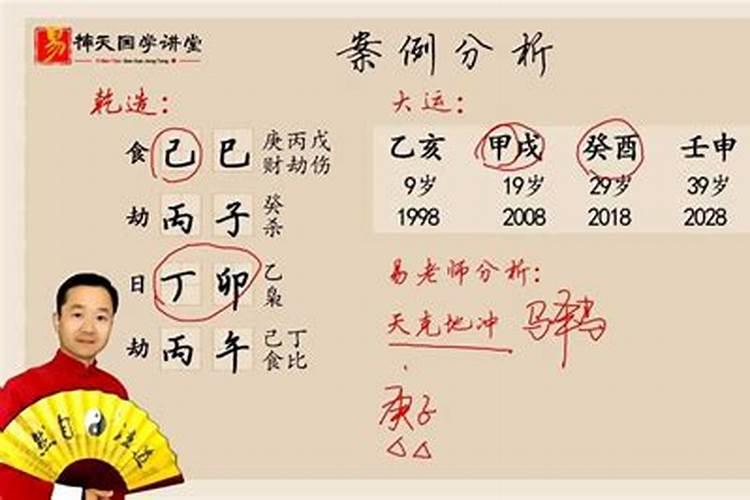 易 楠天国学讲堂
案例分析
乾造：
食 己 巳 庚丙戊
财劫伤
劫 丙 子 癸
杀
日 丁 卯 乙
枭
劫 丙 午 己丁
食比
大运：
乙亥 甲戌 癸酉 壬申
9岁 19岁 29岁 39岁
1998 2008 2018 2028
易老师分析：
天克地冲
庚子
道法自然